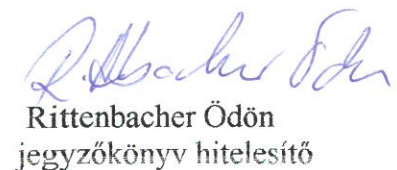 Rittenbacher Ödön
Rittenbacher Ödön
jegyzőkönyv hitelesítő